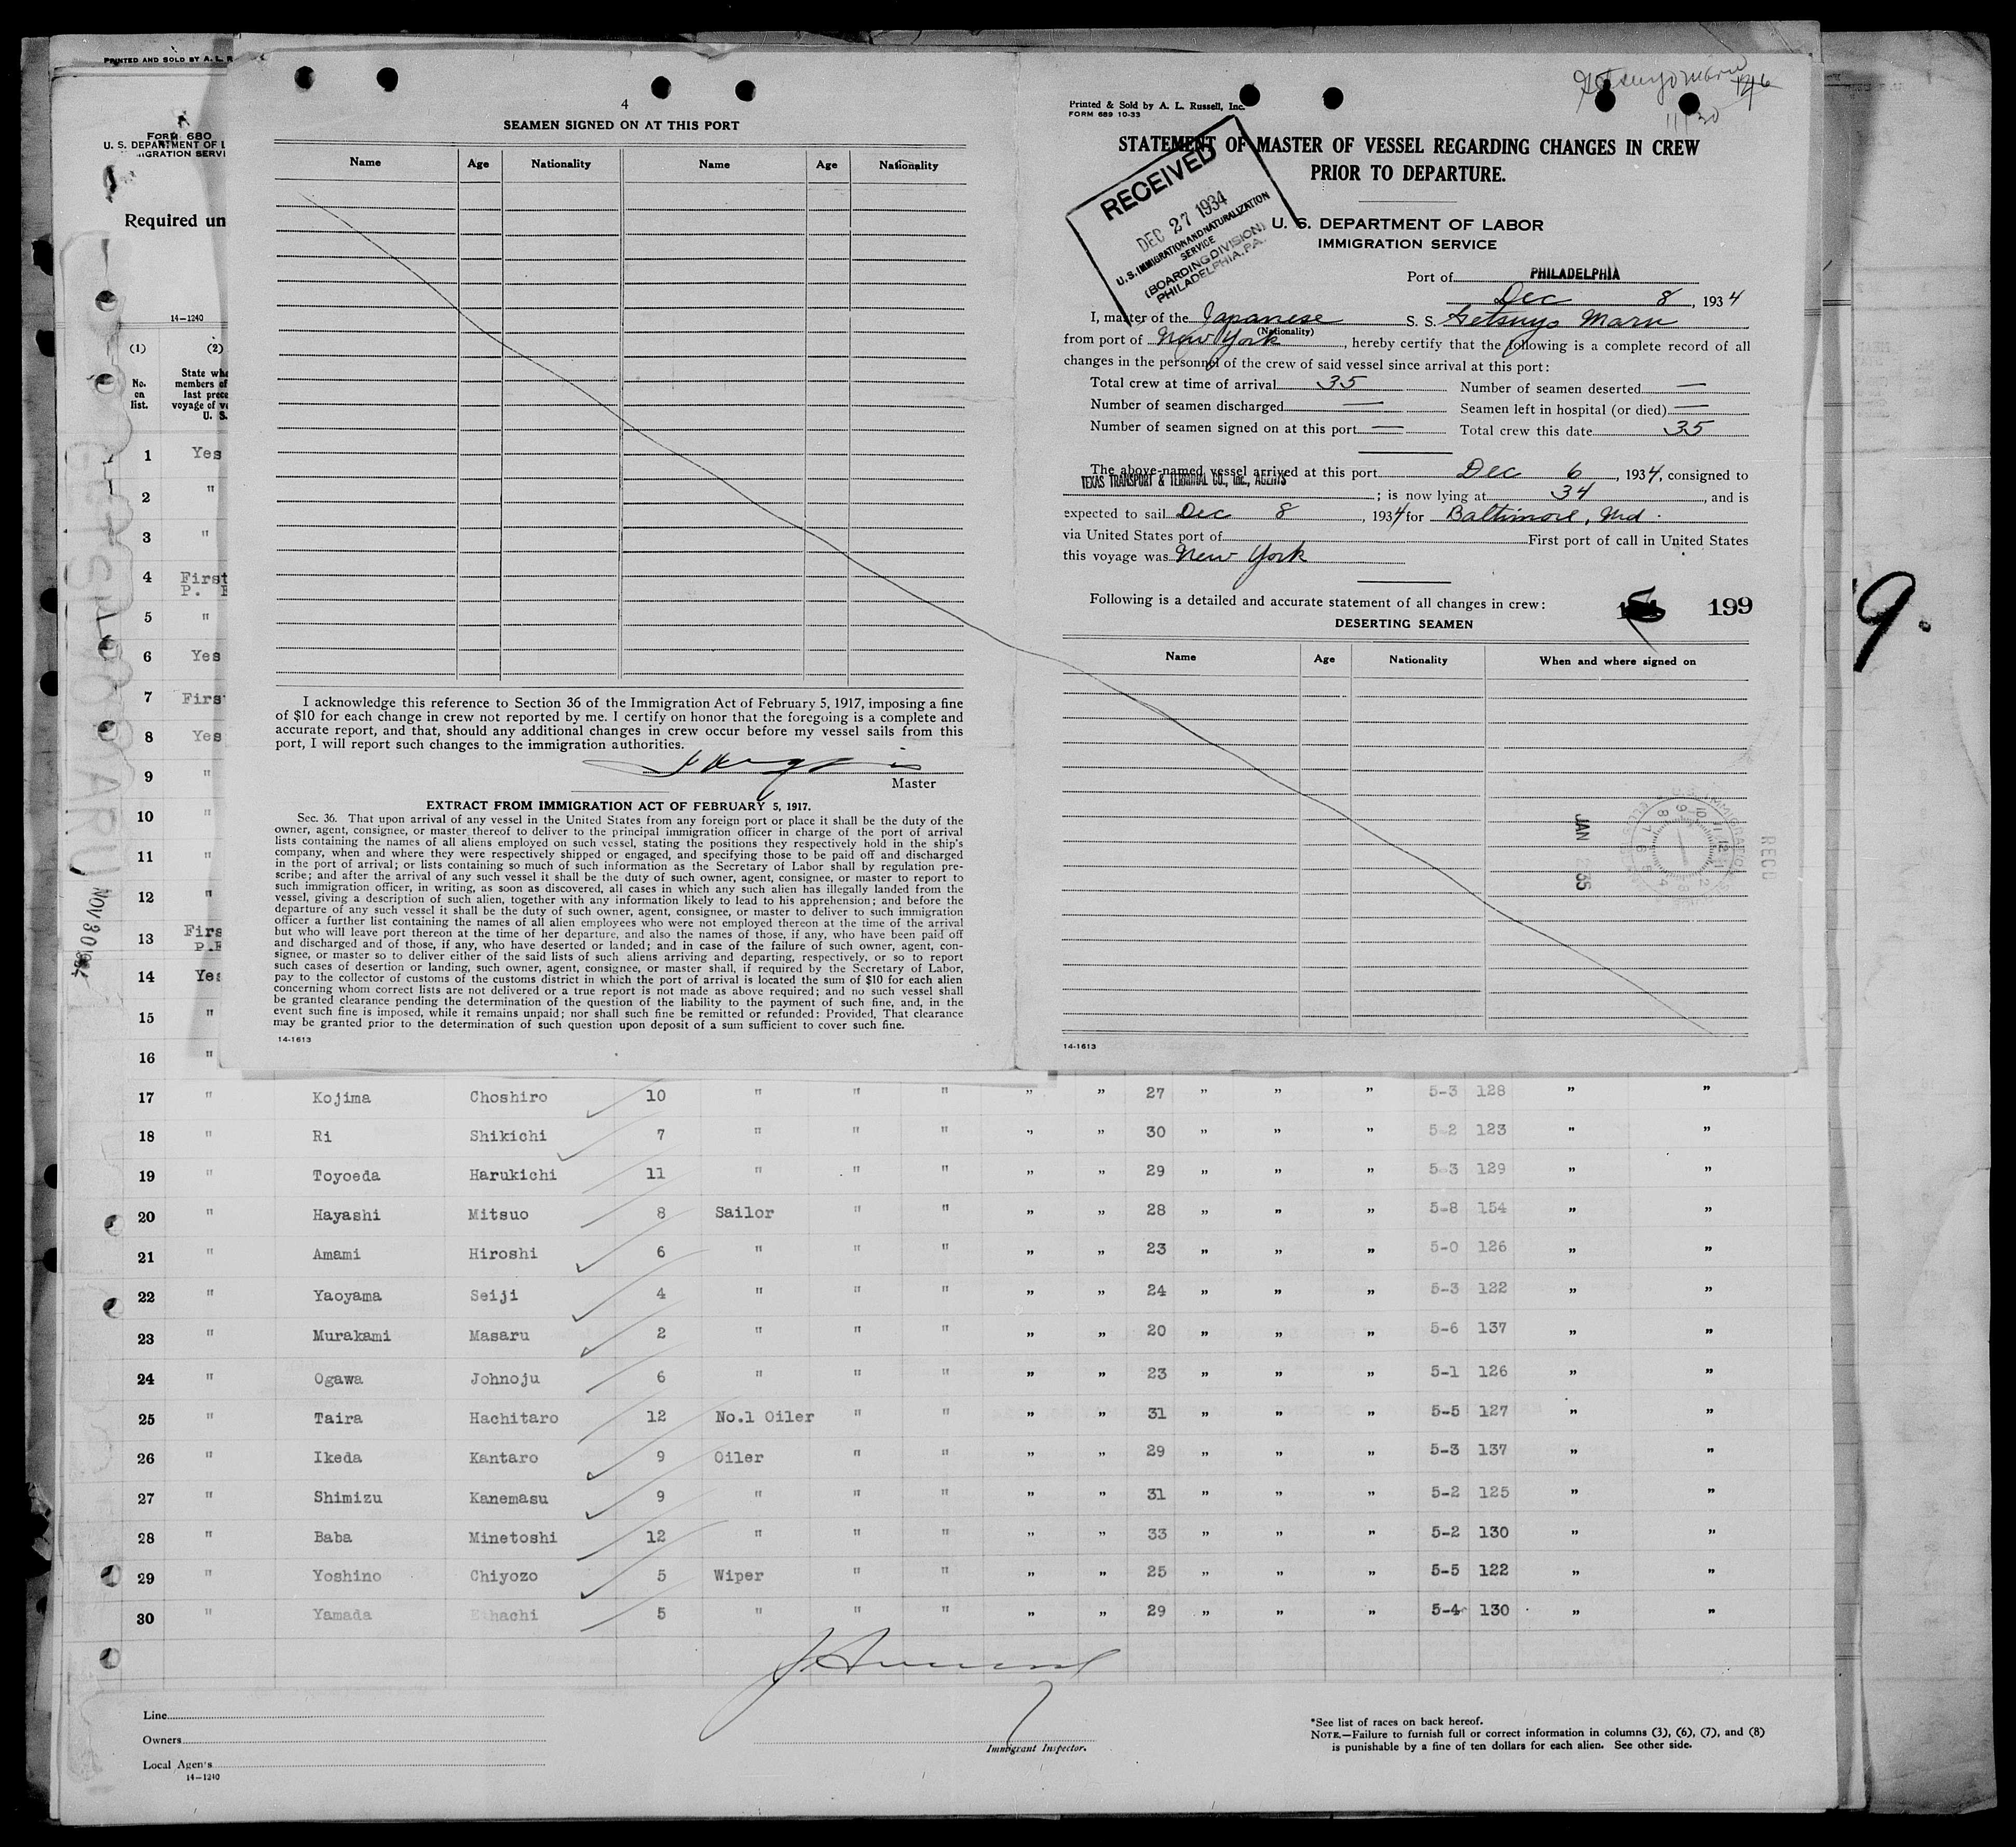 PRINTED AND SOLD BY A. L. R
FORM 680
U. S. DEPARTMENT OF L
IMMIGRATION SERVI
Required un
14—1240
(1) (2)
No. on list.
State whe
members of
last prece
voyage of ve
U. S.
1 Yes
2 "
3 "
4 First
P.
5 "
6 Yes
7 Firs
8 Yes
9 "
10 "
11 "
12 "
13 Firs
P.
14 Yes
15 "
16 "
NOV 30
4
SEAMEN SIGNED ON AT THIS PORT
Name Age Nationality Name Age Nationality
I acknowledge this reference to Section 36 of the Immigration Act of February 5, 1917, imposing a fine
of $10 for each change in crew not reported by me. I certify on honor that the foregoing is a complete and
accurate report, and that, should any additional changes in crew occur before my vessel sails from this
port, I will report such changes to the immigration authorities.
Master
EXTRACT FROM IMMIGRATION ACT OF FEBRUARY 5, 1917.
Sec. 36. That upon arrival of any vessel in the United States from any foreign port or place it shall be the duty of the
owner, agent, consignee, or master thereof to deliver to the principal immigration officer in charge of the port of arrival
lists containing the names of all aliens employed on such vessel, stating the positions they respectively hold in the ship's
company, when and where they were respectively shipped or engaged, and specifying those to be paid off and discharged
in the port of arrival; or lists containing so much of such information as the Secretary of Labor shall by regulation pre-
scribe; and after the arrival of any such vessel it shall be the duty of such owner, agent, consignee, or master to report to
such immigration officer, in writing, as soon as discovered, all cases in which any such alien has illegally landed from the
vessel, giving a description of such alien, together with any information likely to lead to his apprehension; and before the
departure of any such vessel it shall be the duty of such owner, agent, consignee, or master to deliver to such immigration
officer a further list containing the names of all alien employees who were not employed thereon at the time of the arrival
but who will leave port thereon at the time of her departure, and also the names of those, if any, who have been paid off
and discharged and of those, if any, who have deserted or landed; and in case of the failure of such owner, agent, con-
signee, or master so to deliver either of the said lists of such aliens arriving and departing, respectively, or so to report
such cases of desertion or landing, such owner, agent, consignee, or master shall, if required by the Secretary of Labor,
pay to the collector of customs of the customs district in which the port of arrival is located the sum of $10 for each alien
concerning whom correct lists are not delivered or a true report is not made as above required; and no such vessel shall
be granted clearance pending the determination of the question of the liability to the payment of such fine, and, in the
event such fine is imposed, while it remains unpaid; nor shall such fine be remitted or refunded: Provided, That clearance
may be granted prior to the determination of such question upon deposit of a sum sufficient to cover such fine.
14-1613
Getsuyo Maru
11/30
Printed & Sold by A. L. Russell, Inc.
FORM 689 10-33
STATEMENT OF MASTER OF VESSEL REGARDING CHANGES IN CREW
PRIOR TO DEPARTURE.
RECEIVED
DEC 27 1934
U. S. IMMIGRATION AND NATURALIZATION
SERVICE
(BOARDING DIVISION)
PHILADELPHIA, PA.
U. S. DEPARTMENT OF LABOR
IMMIGRATION SERVICE
Port of PHILADELPHIA
Dec 8, 1934
I, master of the Japanese S. S. Getsuyo Maru
(Nationality)
from port of New York, hereby certify that the following is a complete record of all
changes in the personnel of the crew of said vessel since arrival at this port:
Total crew at time of arrival 35 Number of seamen deserted —
Number of seamen discharged — Seamen left in hospital (or died) —
Number of seamen signed on at this port — Total crew this date 35
The above-named vessel arrived at this port Dec 6, 1934, consigned to
TEXAS TRANSPORT & TERMINAL CO., Inc., AGENTS
; is now lying at 34, and is
expected to sail Dec 8, 1934 for Baltimore, Md.
via United States port of First port of call in United States
this voyage was New York
Following is a detailed and accurate statement of all changes in crew: 199
DESERTING SEAMEN
Name Age Nationality When and where signed on
JAN 35
RECD
14-1613
9.
17 " Kojima Choshiro 10 " " " " " 27 " " " 5-3 128 " "
18 " Ri Shikichi 7 " " " " " 30 " " " 5-2 123 " "
19 " Toyoeda Harukichi 11 " " " " " 29 " " " 5-3 129 " "
20 " Hayashi Mitsuo 8 Sailor " " " " 28 " " " 5-8 154 " "
21 " Amami Hiroshi 6 " " " " " 23 " " " 5-0 126 " "
22 " Yaoyama Seiji 4 " " " " " 24 " " " 5-3 122 " "
23 " Murakami Masaru 2 " " " " " 20 " " " 5-6 137 " "
24 " Ogawa Johnoju 6 " " " " " 23 " " " 5-1 126 " "
25 " Taira Hachitaro 12 No.1 Oiler " " " " 31 " " " 5-5 127 " "
26 " Ikeda Kantaro 9 Oiler " " " " 29 " " " 5-3 137 " "
27 " Shimizu Kanemasu 9 " " " " " 31 " " " 5-2 125 " "
28 " Baba Minetoshi 12 " " " " " 33 " " " 5-2 130 " "
29 " Yoshino Chiyozo 5 Wiper " " " " 25 " " " 5-5 122 " "
30 " Yamada 5 " " " " " 29 " " " 5-4 130 " "
Line
Owners
Local Agents
14—1240
Immigrant Inspector.
*See list of races on back hereof.
NOTE.—Failure to furnish full or correct information in columns (3), (6), (7), and (8)
is punishable by a fine of ten dollars for each alien. See other side.